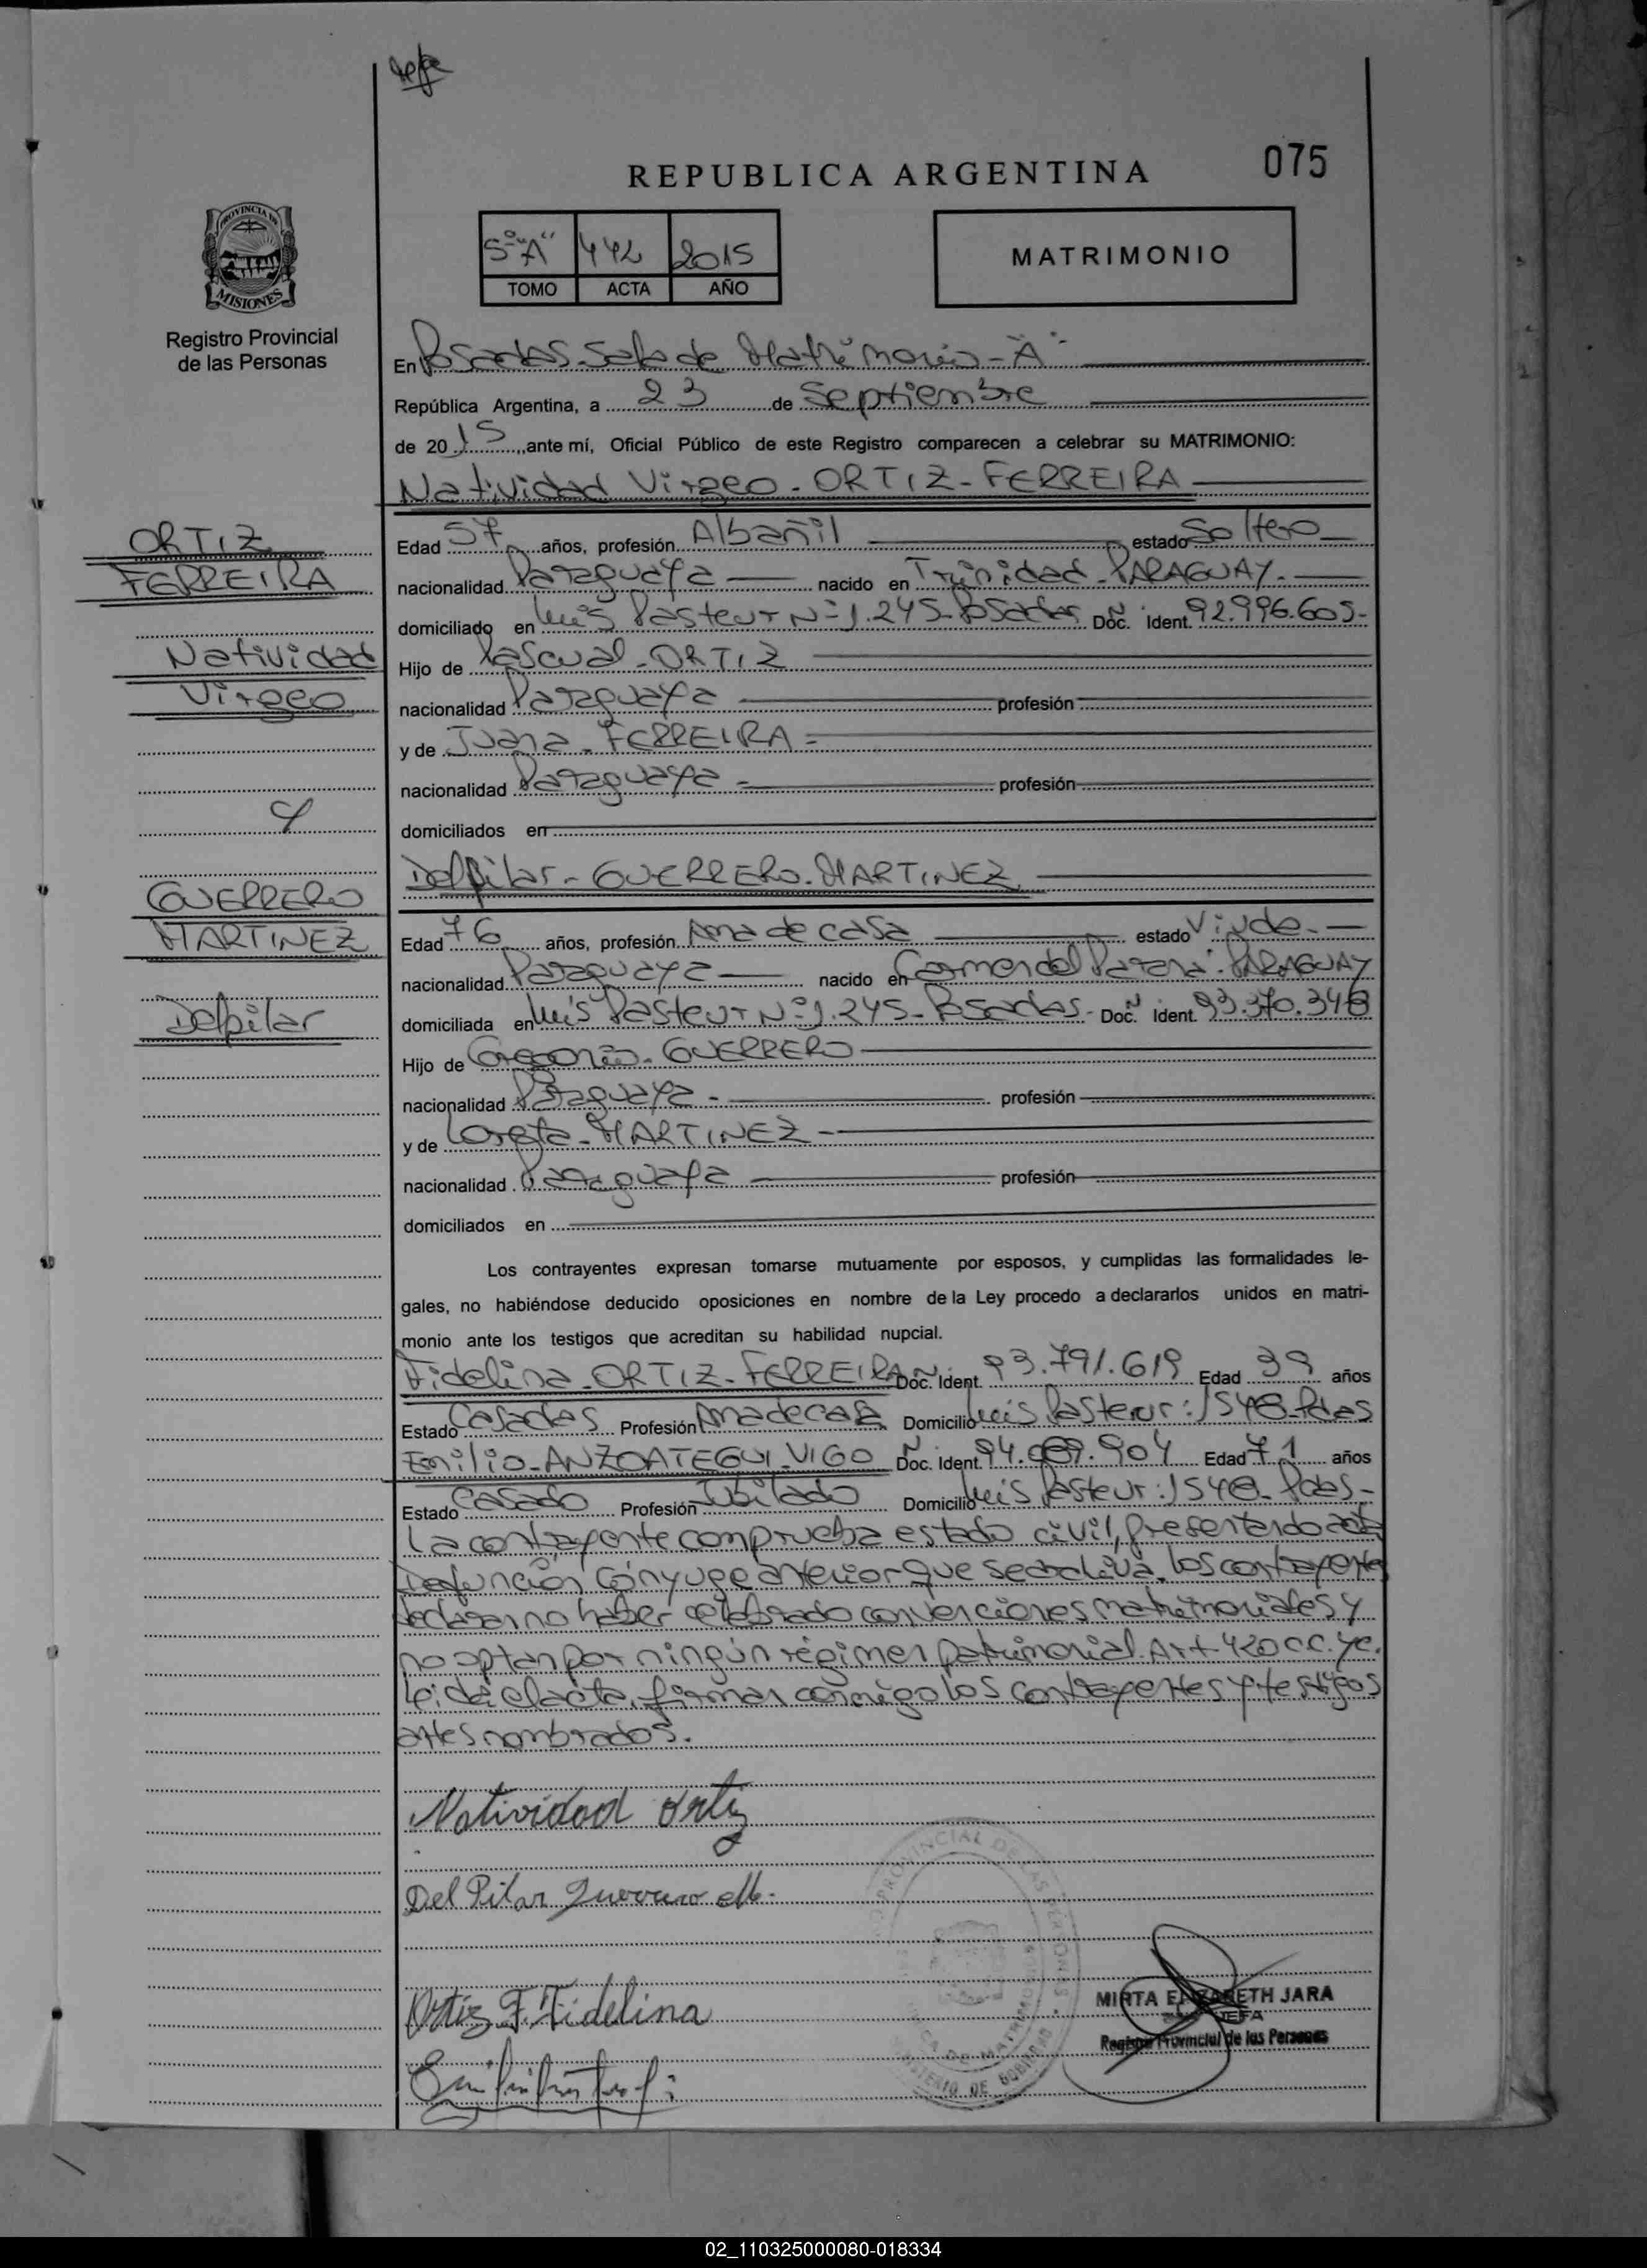 Jefe
075
REPUBLICA ARGENTINA
PROVINCIA DE
MISIONES
Registro Provincial
de las Personas
5º "A" 442 2015
TOMO ACTA AÑO
MATRIMONIO
En Posadas-Sala de Matrimonio-"A"
República Argentina, a 23 de Septiembre
de 2015, ante mí, Oficial Público de este Registro comparecen a celebrar su MATRIMONIO:
Natividad Virgeo-ORTIZ-FERREIRA
Edad 57 años, profesión Albañil estado Soltero
nacionalidad Paraguaya nacido en Trinidad-PARAGUAY.
domiciliado en Luis Pasteur Nº 1.245-Posadas Doc. Ident. Nº 92.996.605-
Hijo de Pascual-ORTIZ
nacionalidad Paraguaya profesión
y de Juana-FERREIRA-
nacionalidad Paraguaya- profesión
domiciliados en
Delpilar-GUERRERO-MARTINEZ
Edad 76 años, profesión Ama de casa estado Viuda.-
nacionalidad Paraguaya nacido en Carmen del Parana-PARAGUAY
domiciliada en Luis Pasteur Nº 1.245-Posadas- Doc. Ident. Nº 93.370.348
Hijo de Gregorio-GUERRERO
nacionalidad Paraguaya- profesión
y de MARTINEZ-
nacionalidad Paraguaya profesión
domiciliados en
ORTIZ
FERREIRA
Natividad
Virgeo
y
GUERRERO
MARTINEZ
Delpilar
Los contrayentes expresan tomarse mutuamente por esposos, y cumplidas las formalidades le-
gales, no habiéndose deducido oposiciones en nombre de la Ley procedo a declararlos unidos en matri-
monio ante los testigos que acreditan su habilidad nupcial.
Fidelina-ORTIZ-FERREIRA Doc. Ident. Nº 93.791.619 Edad 39 años
Estado Casada Profesión Ama de casa Domicilio Luis Pasteur: 1548-Pdas
Emilio-ANZOATEGUI-VIGO Doc. Ident. Nº 94.089.904 Edad 71 años
Estado Casado Profesión Jubilado Domicilio Luis Pasteur: 1548-Pdas-
La contrayente comprueba estado civil, presentando acta
Defunción Cónyuge anterior que se archiva. Los contrayentes
declaran no haber celebrado convenciones matrimoniales y
no optan por ningún régimen patrimonial. Art 420 C.C.yC.
Leída el acta, firman conmigo los contrayentes y testigos
antes nombrados.
Natividad Ortiz
Del Pilar Guerrero M.
Ortiz F. Fidelina
PROVINCIAL DE LAS PERSONAS
MINISTERIO DE GOBIERNO
MIRTA ELIZABETH JARA
JEFA
Registro Provincial de las Personas
02_110325000080-018334